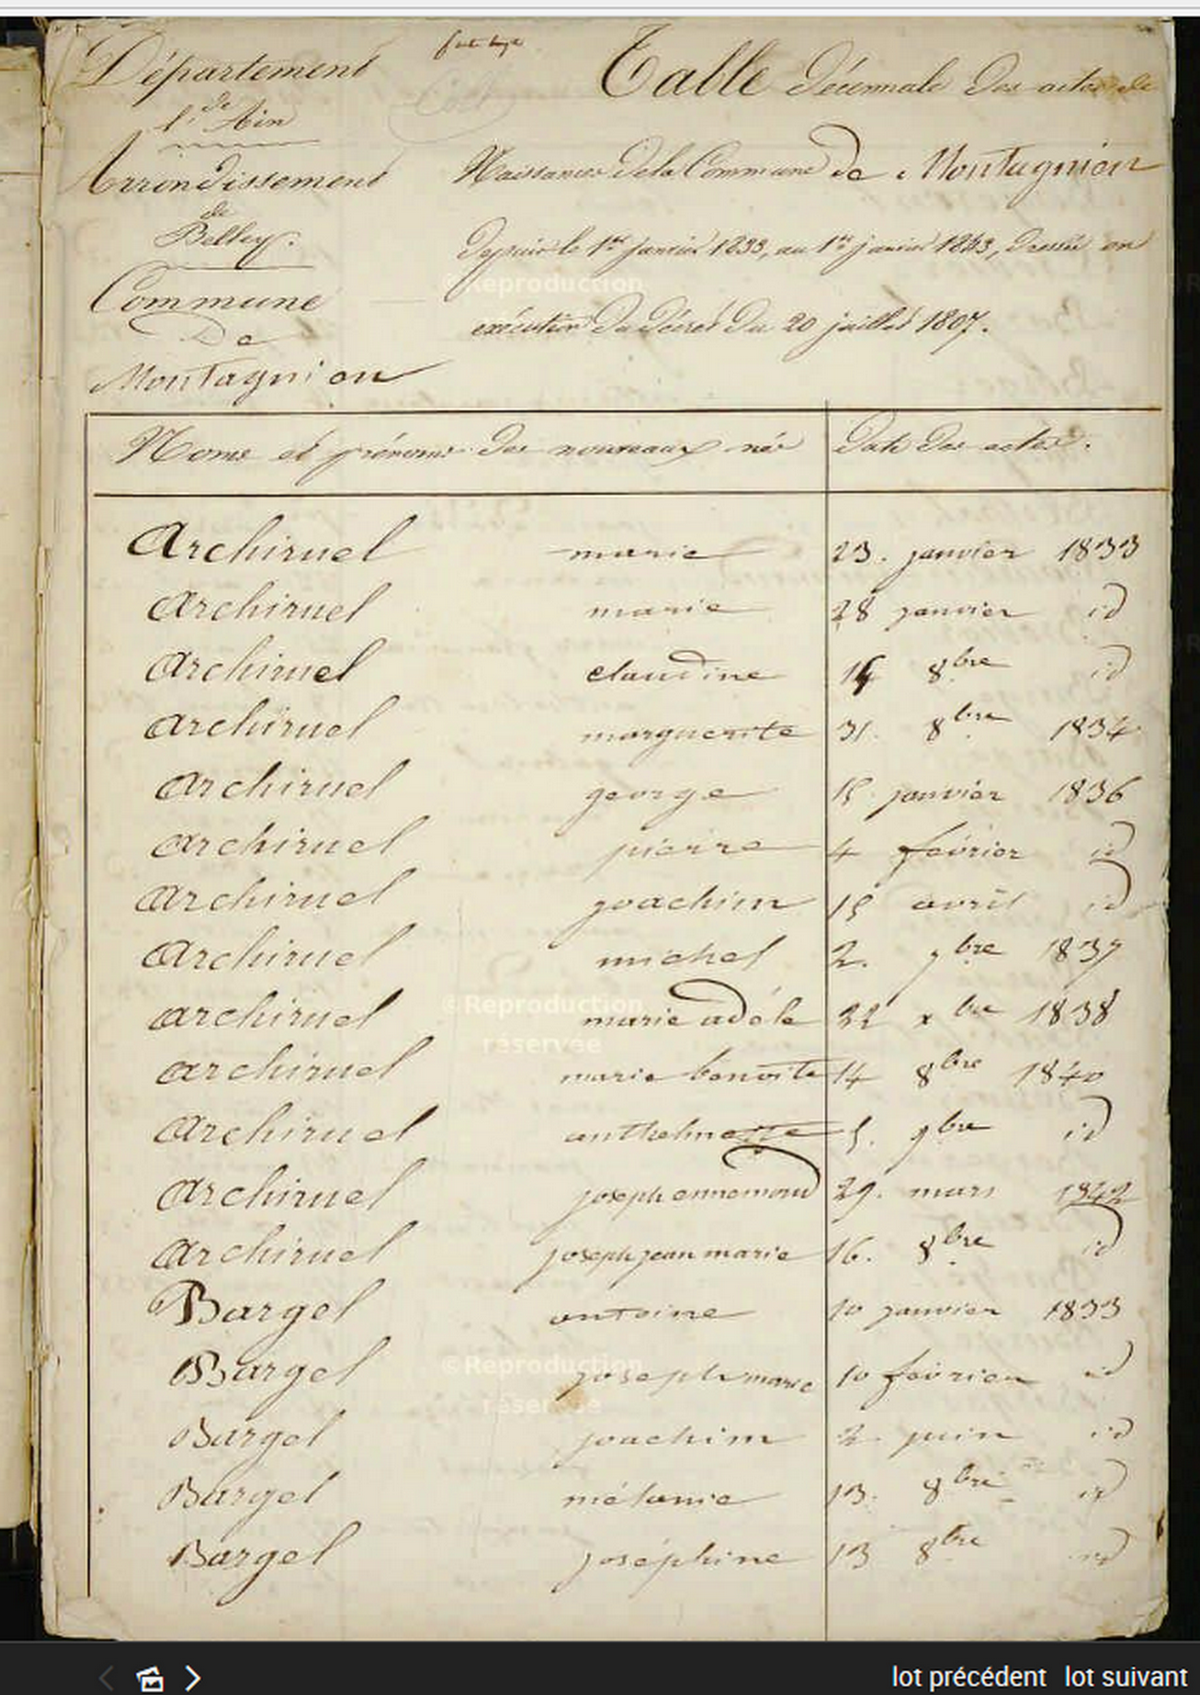 Département
de
l'Ain
Arrondissement
de
Belley.
Commune
De
Montagnieu
Table décennale des actes de
Naissances de la Commune de Montagnieu
depuis le 1er janvier 1833, au 1er janvier 1843, dressée en
exécution du décret du 20 juillet 1807.
Noms et prénoms des nouveaux nés Date des actes.
Archiruel marie 23. janvier 1833
Archiruel marie 28 janvier id
Archiruel claudine 14 8bre id
Archiruel marguerite 31. 8bre 1834
Archiruel george 15 janvier 1836
Archiruel pierre 4 février id
Archiruel joachim 15 avril id
Archiruel michel 2. 9bre 1837
Archiruel marie adéle 22 xbre 1838
Archiruel marie benoite 14 8bre 1840
Archiruel anthelmette 5. 9bre id
Archiruel joseph ennemond 29. mars 1842
Archiruel joseph jean marie 16. 8bre id
Bargel antoine 10 janvier 1833
Bargel joseph marie 10 février id
Bargel joachim 2 juin id
Bargel mélanie 13. 8bre id
Bargel joséphine 13 8bre id
©Reproduction
©Reproduction
réservée
©Reproduction
réservée
lot précédent lot suivant